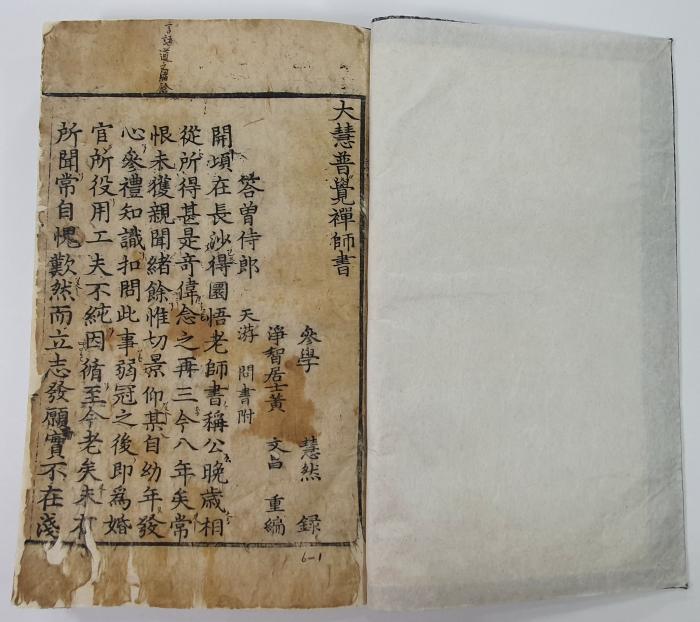 大慧普覺禪師書
參學 慧然 錄
淨智居士黃 文昌 重編
答曾侍郎 天游 問書附
開頃在長沙得圜悟老師書稱公晚歲相
從所得甚是奇偉念之再三今八年矣常
恨未獲親聞緒餘惟切景仰某自幼年發
心參禮知識扣問此事弱冠之後即爲婚
官所役用工夫不純因循至今老矣未有
所聞常自愧歎然而立志發願實不在淺
言語道
6-1